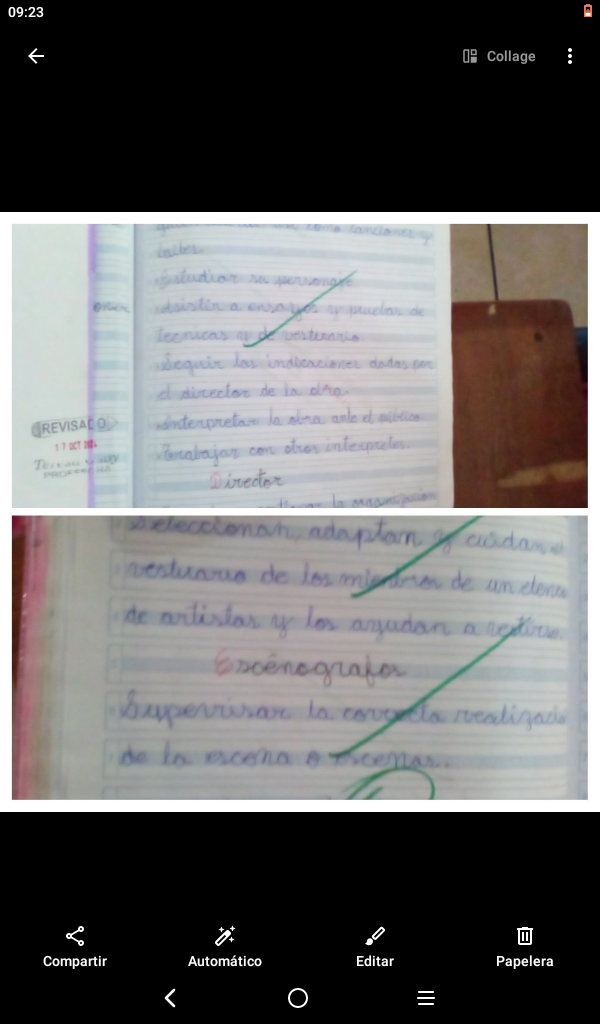 09:23
Collage
como canciones y
bailes.
Estudiar su personaje
Asistir a ensayos y pruebas de
tecnicas y de vestuario
Seguir las indicaciones dadas por
el director de la obra.
Interpretar la obra ante el público
Trabajar con otros interpretes.
Director
la organización
REVISADO
17 OCT
PROFESORA
Seleccionan, adaptan y cuidan el
vestuario de los miembros de un elenco
de artistas y los ayudan a vestirse.
Escénografos
Supervisar la correcta realizació
de la escena o escenas.
Compartir
Automático
Editar
Papelera